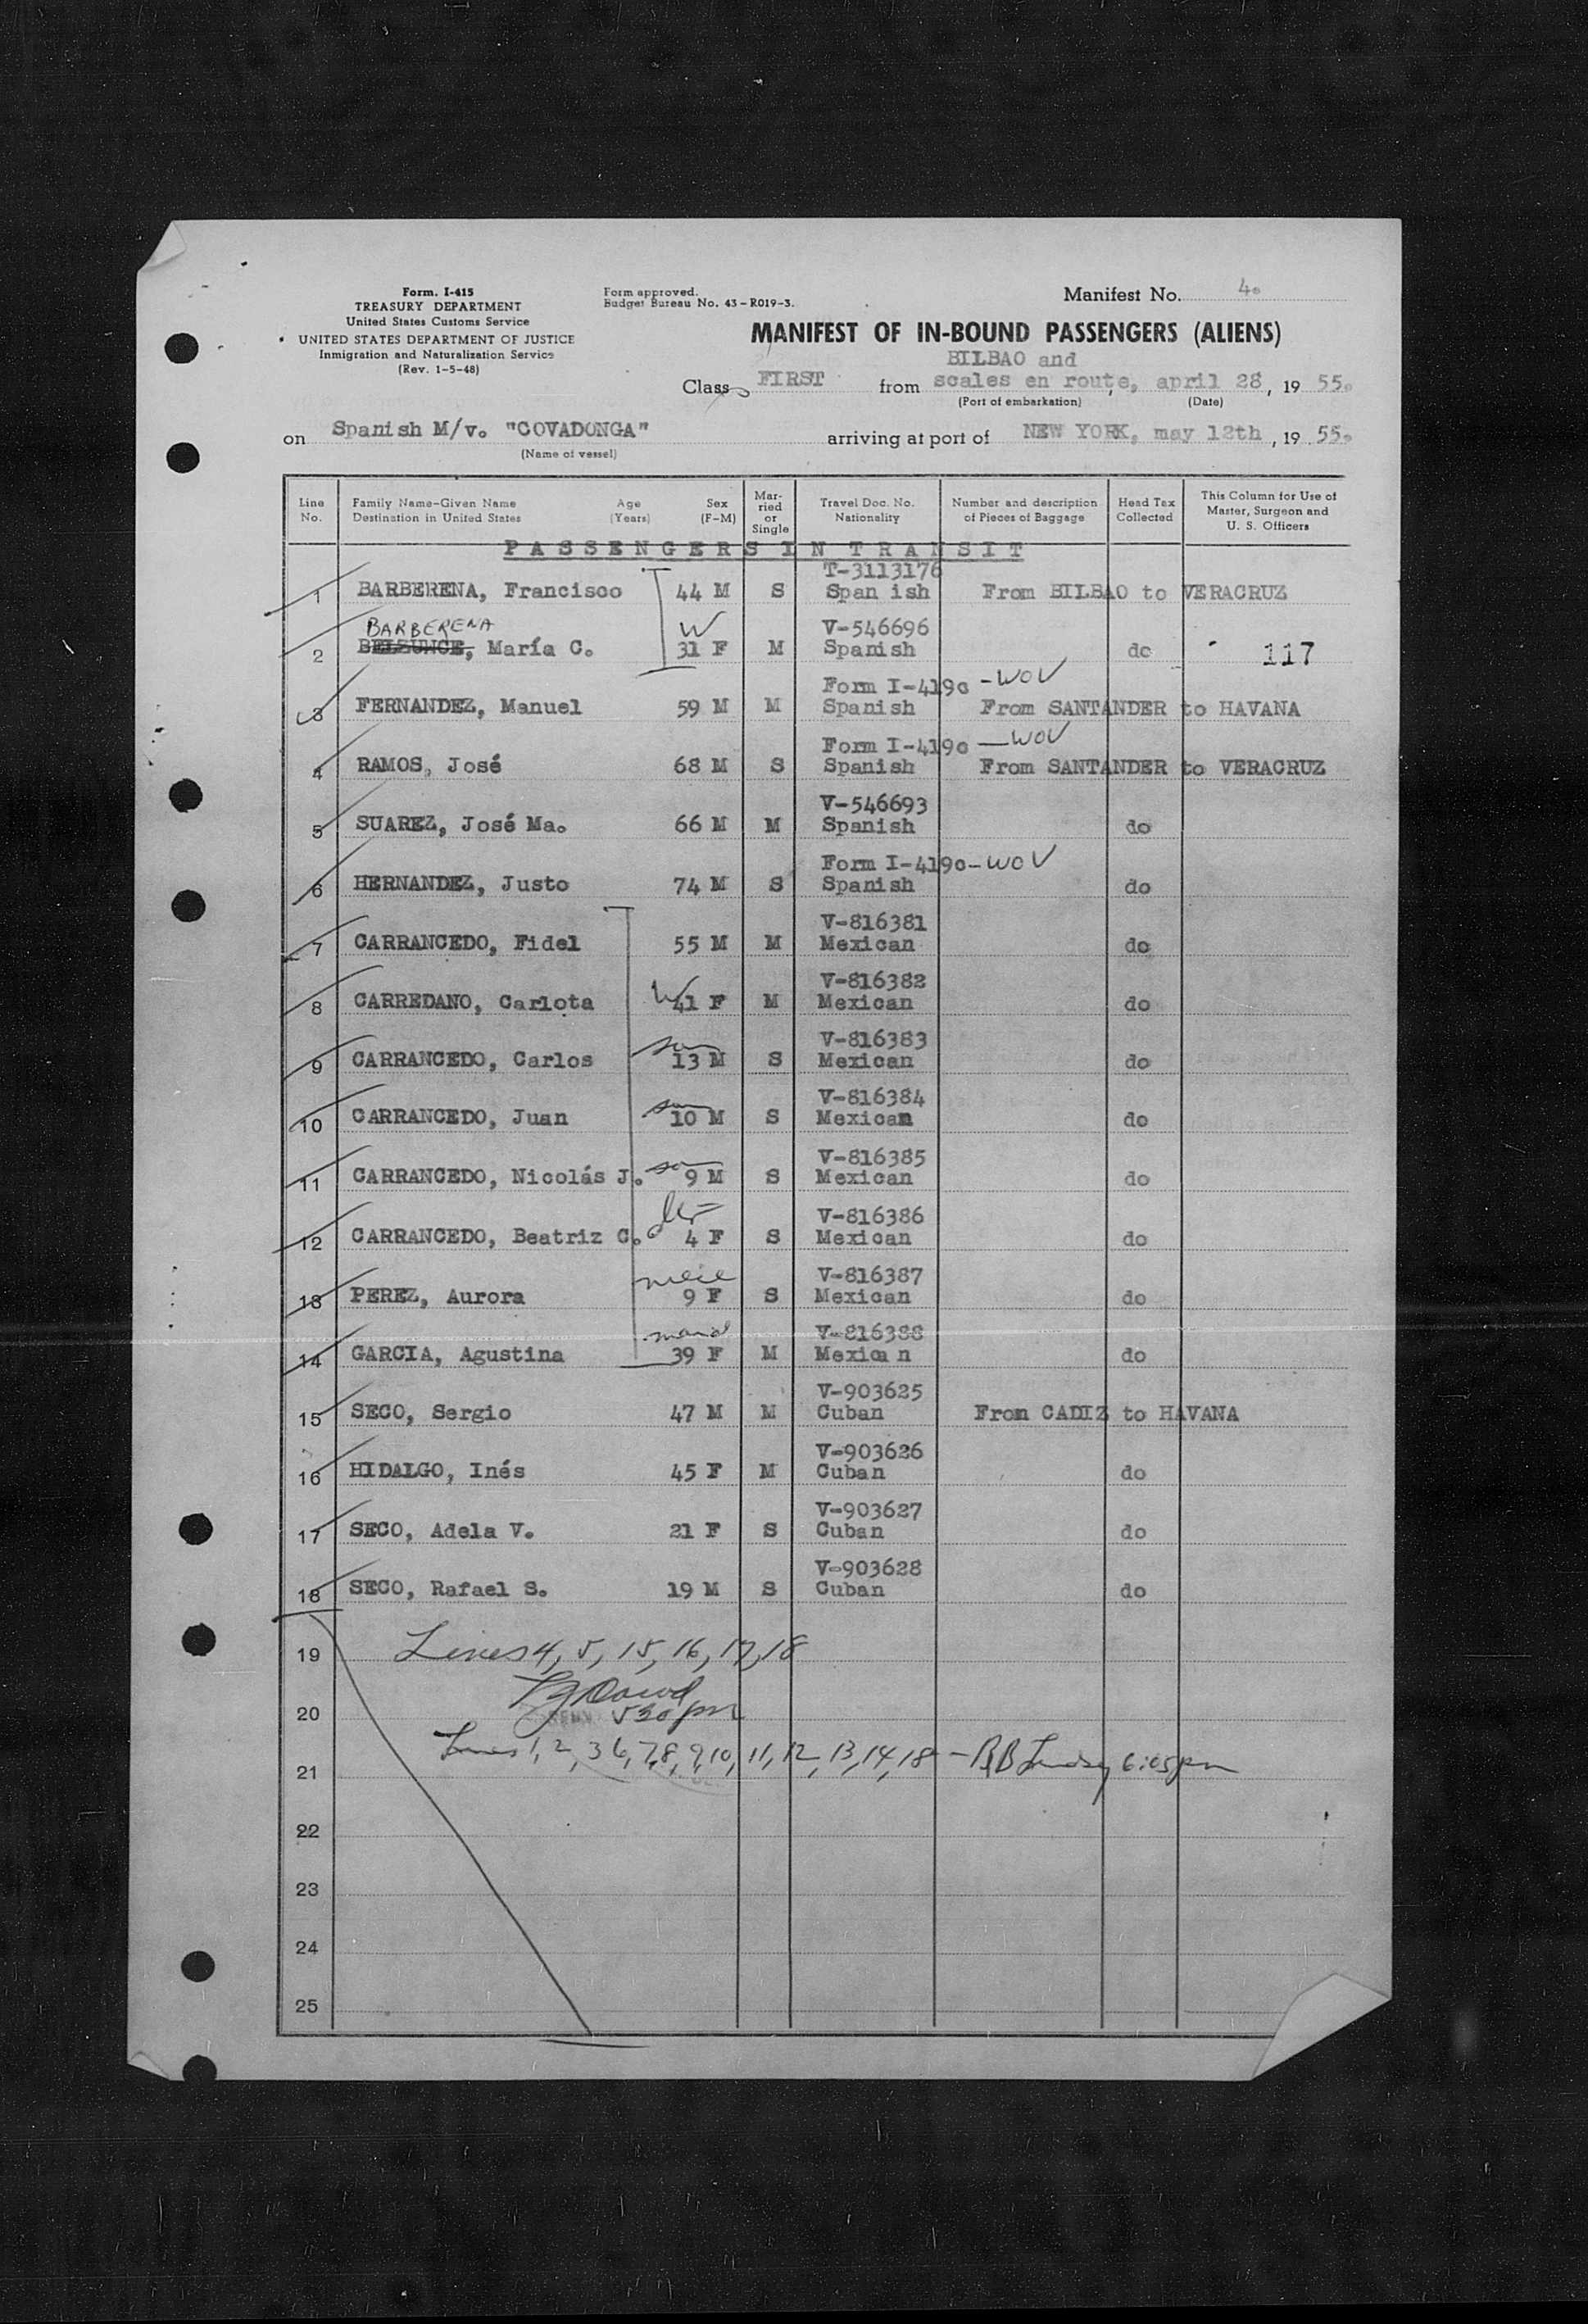 Form. I-415
TREASURY DEPARTMENT
United States Customs Service
UNITED STATES DEPARTMENT OF JUSTICE
Inmigration and Naturalization Service
(Rev. 1-5-48)
Form approved.
Budget Bureau No. 43-R019-3.
Manifest No. 4.
MANIFEST OF IN-BOUND PASSENGERS (ALIENS)
BILBAO and
Class FIRST from scales en route, april 28, 19 55.
(Port of embarkation) (Date)
on Spanish M/v. "COVADONGA" arriving at port of NEW YORK, may 12th, 19 55.
(Name of vessel)
Line No. Family Name-Given Name Destination in United States Age (Years) Sex (F-M) Mar-ried or Single Travel Doc. No. Nationality Number and description of Pieces of Baggage Head Tax Collected This Column for Use of Master, Surgeon and U. S. Officers
PASSENGERS IN TRANSIT
T-3113176
1 BARBERENA, Francisco 44 M S Span ish From BILBAO to VERACRUZ
BARBERENA W V-546696
2 BELSUNCE, María C. 31 F M Spanish do 117
Form I-419c -WOV
3 FERNANDEZ, Manuel 59 M M Spanish From SANTANDER to HAVANA
Form I-419c -WOV
4 RAMOS, José 68 M S Spanish From SANTANDER to VERACRUZ
V-546693
5 SUAREZ, José Ma. 66 M M Spanish do
Form I-419c-WOV
6 HERNANDEZ, Justo 74 M S Spanish do
V-816381
7 CARRANCEDO, Fidel 55 M M Mexican do
W V-816382
8 CARREDANO, Carlota 41 F M Mexican do
son V-816383
9 CARRANCEDO, Carlos 13 M S Mexican do
son V-816384
10 CARRANCEDO, Juan 10 M S Mexican do
son V-816385
11 CARRANCEDO, Nicolás J. 9 M S Mexican do
V-816386
12 CARRANCEDO, Beatriz C. 4 F S Mexican do
niece V-816387
13 PEREZ, Aurora 9 F S Mexican do
maid V-816388
14 GARCIA, Agustina 39 F M Mexica n do
V-903625
15 SECO, Sergio 47 M M Cuban From CADIZ to HAVANA
V-903626
16 HIDALGO, Inés 45 F M Cuban do
V-903627
17 SECO, Adela V. 21 F S Cuban do
V-903628
18 SECO, Rafael S. 19 M S Cuban do
19 Lines 4, 5, 15, 16, 17, 18
20 530 pm
21 Lines 1, 2, 3 6, 7, 8, 9, 10, 11, 12, 13, 14, 18 - 6:05 pm
22
23
24
25